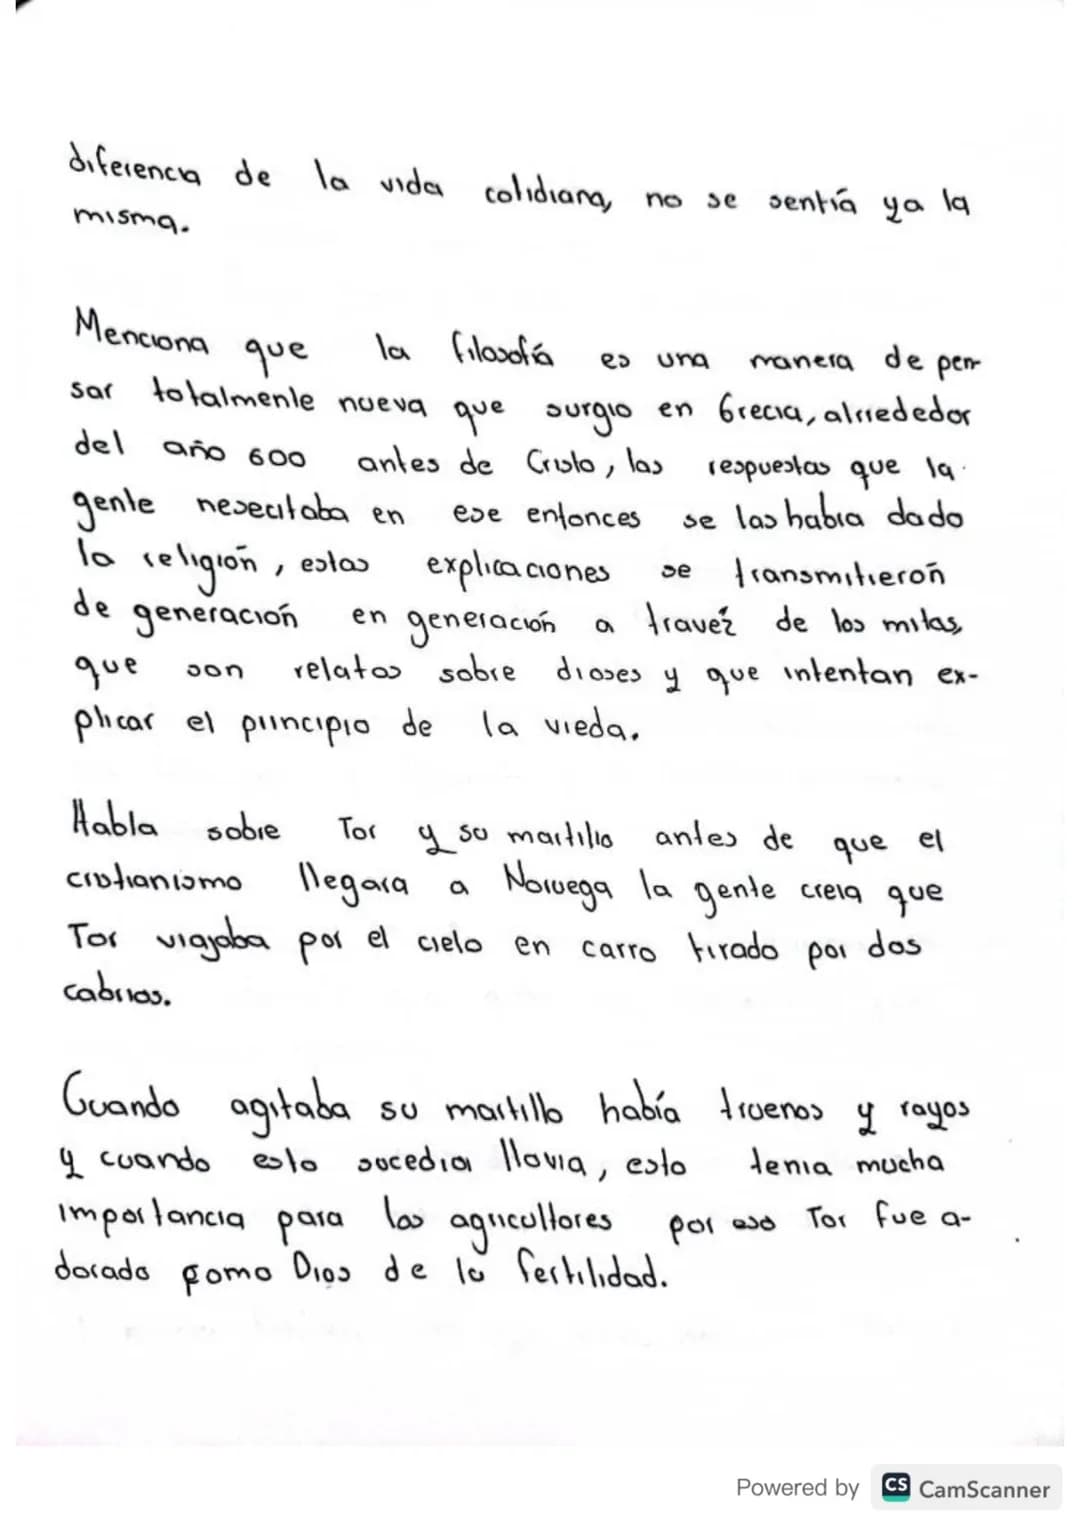 diferencia de la vida cotidiana, no se sentía ya la
misma.
Menciona que la filosofía es una manera de pen-
sar totalmente nueva que surgio en Grecia, alrrededor
del año 600 antes de Cristo, las respuestas que la
gente nesecitaba en ese entonces se las habia dado
la religión, estas explicaciones se transmitierón
de generación en generación a travéz de los mitos,
que son relatos sobre dioses y que intentan ex-
plicar el principio de la vieda.
Habla sobre Tor y su martillo antes de que el
cristianismo llegara a Noruega la gente creia que
Tor viajaba por el cielo en carro tirado por dos
cabrios.
Cuando agitaba su martillo había truenos y rayos
y cuando esto sucedia llovia, esto tenia mucha
importancia para los agricultores por eso Tor fue a-
dorado como Dios de la fertilidad.
Powered by CS CamScanner